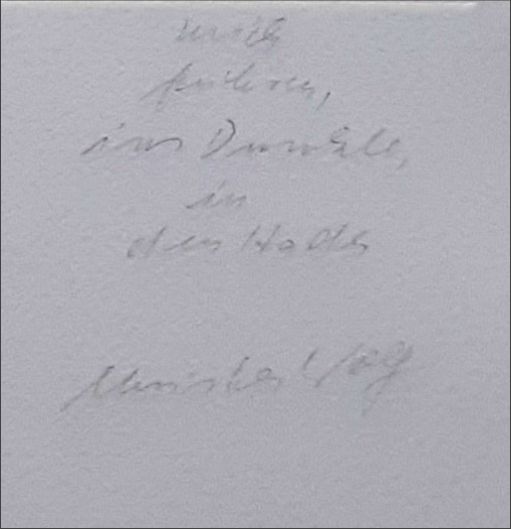 mich
führen,
ins Dunkle,
in
den Hades